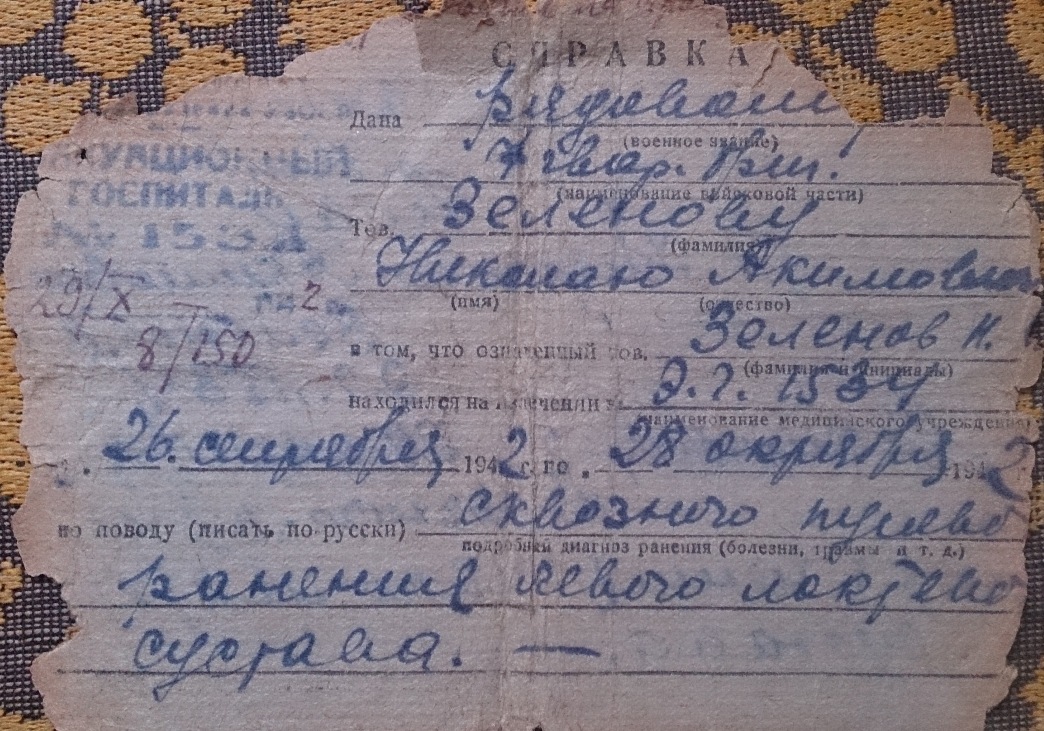 СПРАВКА
Дана рядовому
(военное звание)
7 гвар. бриг.
(наименование войсковой части)
Тов. Зеленову
(фамилия)
Николаю Акимович
(имя) (отчество)
в том, что означенный тов. Зеленов Н.
(фамилия и инициалы)
находился на излечении в Э.Г. 1534
(наименование медицинского учреждения)
26. сентября 1942 г. по 28 октября 1942
по поводу (писать по-русски) сквозного пулево
подробный диагноз ранения (болезни, травмы и т. д.)
ранения левого локтево
сустава. —
КУАЦИОННЫЙ
ГОСПИТАЛЬ
29/X 2
8/150